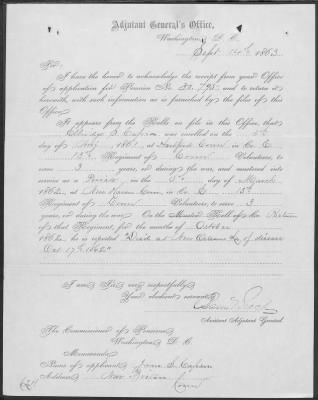 Adjutant General's Office,
Washington, D. C.
Sept 14th, 1863
Sir:
I have the honor to acknowledge the receipt from your Office
of application for Pension No. 32.793 and to return it
herewith, with such information as is furnished by the files of this
Office.
It appears from the Rolls on file in this Office, that
S. Capron was enrolled on the 5th
day of Nov, 1861 at Hartford Conn in Co. E
13th Regiment of Conn Volunteers, to
serve 3 years, or during the war, and mustered into
service as a Private, on the day of March
1862, at New Haven Conn, in Co. E 13th
Regiment of Conn Volunteers, to serve 3
years, or during the war. On the Muster Roll of Co.
of that Regiment, for the months of October
1862, he is reported "Died at New Orleans La. of disease
Oct 17th 1862"
I am, Sir, very respectfully,
Your obedient servant,
Assistant Adjutant General.
The Commissioner of Pensions,
Washington, D. C.
Memoranda:
Name of applicant, S. Capron
Address, New
Conn